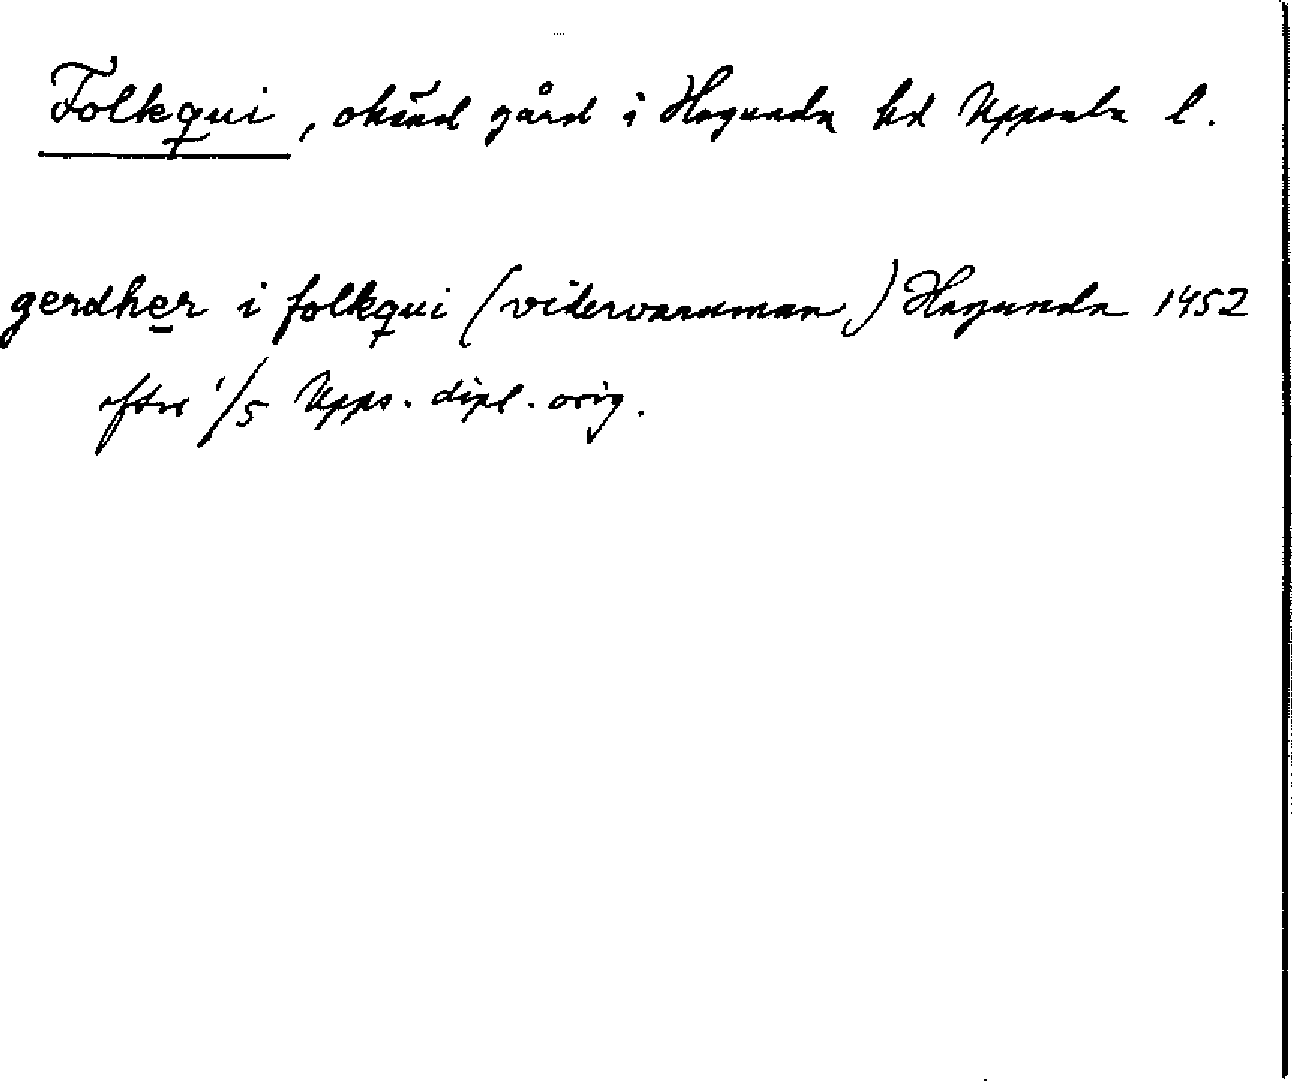 Folkqui, okänd gård i Hagunda hd Uppsala l.
gerdher i folkqui (vitervaruman) Hagunda 1452
efter 1/5 Upps. dipl. orig.